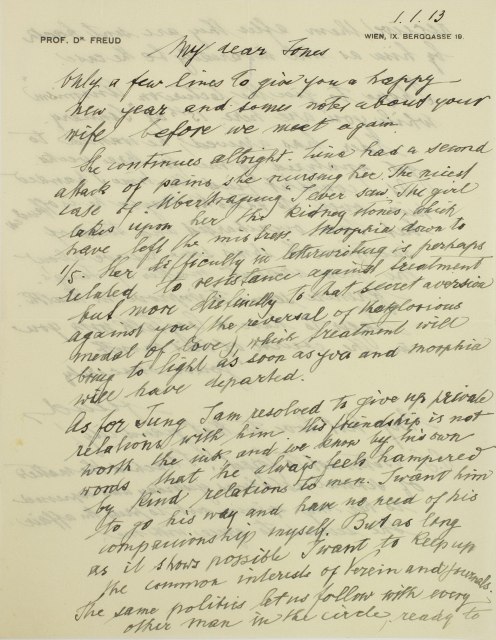 1.1.13
PROF. DR FREUD
WIEN, IX. BERGGASSE 19.
My dear Jones
Only a few lines to give you a happy
new year and somes notes about your
wife before we meet again.
She continues allright. Lina had a second
attack of pains, she nursing her. The nicest
case of „Übertragung" I ever saw. The girl
takes upon her the kidney stones, which
have left the mistress. Morphia down to
1/5. Her difficulty in letterwriting is perhaps
related to resistance against treatment
but more directly to that secret aversion
against you (the reversal of the glorious
medal of love), which treatment will
bring to light as soon as you and morphia
will have departed.
As for Jung I am resolved to give up private
relations with him. His friendship is not
worth the ink and we know by his own
words that he always feels hampered
by kind relations to men. I want him
to go his way and have no need of his
companionship myself. But as long
as it shows possible I want to keep up
the common interests of Verein and Journals.
The same politics let us follow with every
other man in the circle, ready to